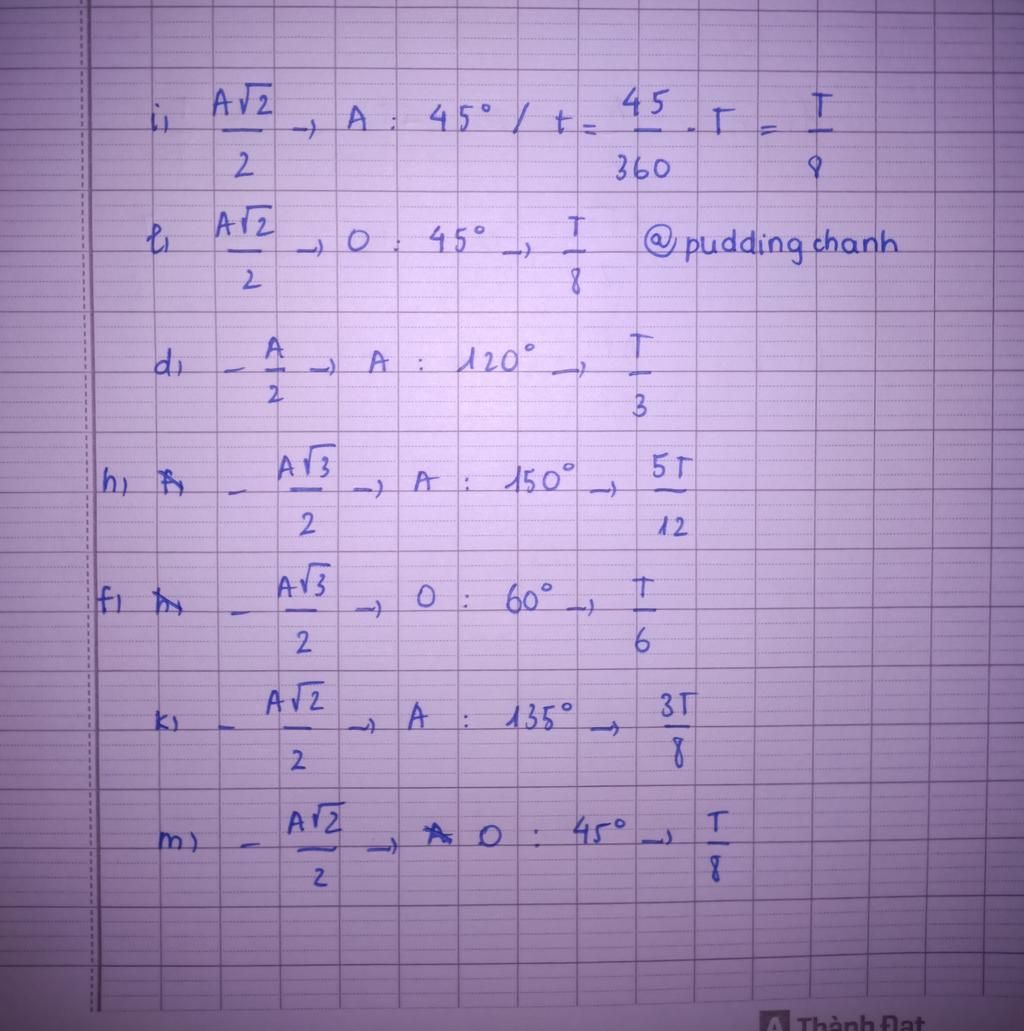 i, A√2/2 → A : 45° / t = 45/360 . T = T/8
l, A√2/2 → O : 45° → T/8 @puddingchanh
d, - A/2 → A : 120° → T/3
h, - A√3/2 → A : 150° → 5T/12
f, - A√3/2 → O : 60° → T/6
k, - A√2/2 → A : 135° → 3T/8
m) - A√2/2 → O : 45° → T/8
A Thành Đạt